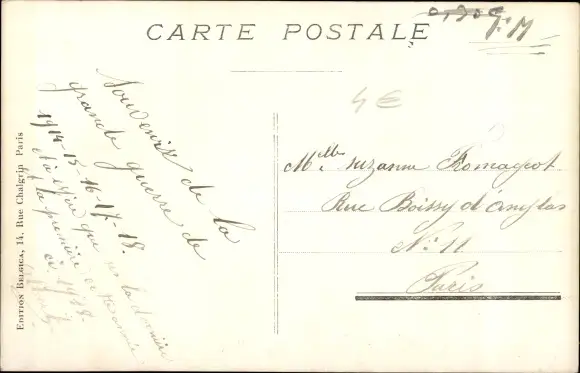 CARTE POSTALE
F. M
4 €
Souvenir de la
grande guerre de
1914-15-16-17-18.
que la dernière
la première
Melle Suzanne Romageot
Rue Boissy d'Anglas
No 11
Paris
EDITION BELGICA, 14, Rue Chalgrin Paris